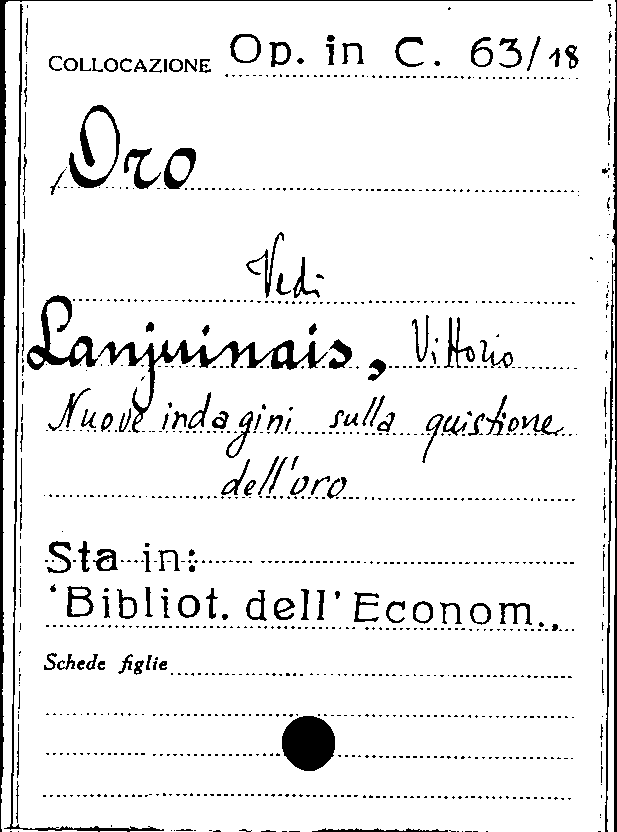 COLLOCAZIONE Op. in C. 63/18
Oro
Vedi
Lanjuinais, Vittorio
Nuove indagini sulla quistione
dell'oro
Sta in:
'Bibliot. dell' Econom.,
Schede figlie